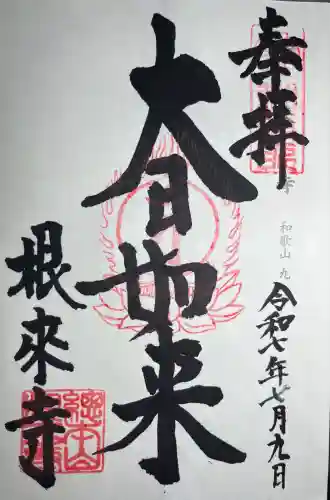 奉拝
寺
和歌山 九
令和七年七月九日
大日如来
根來寺